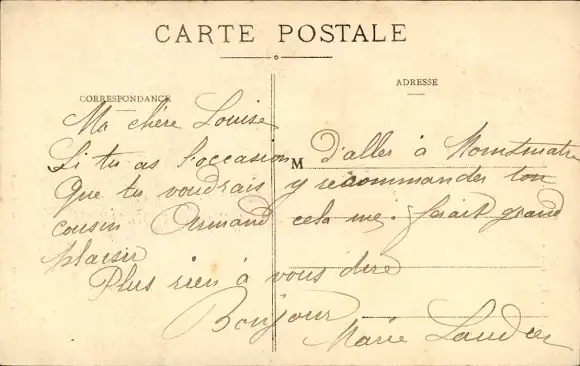 CARTE POSTALE
CORRESPONDANCE
ADRESSE
Ma chère Louise
Si tu as l'occasion M d'aller à Montmatre
que tu voudrais y recommander ton
cousin Armand cela me ferait grand
plaisir
Plus rien à vous dire
Bonjour
Marie